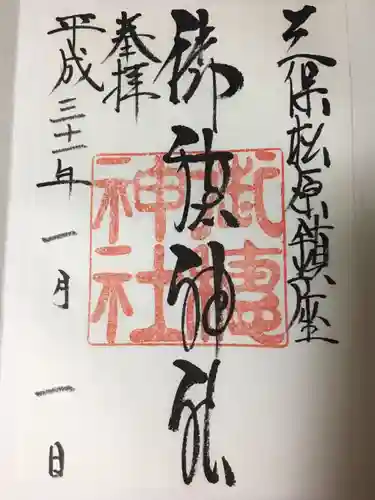 三保松原鎮座
御穂神社
奉拝
平成三十一年 一月 一日
御穂神社